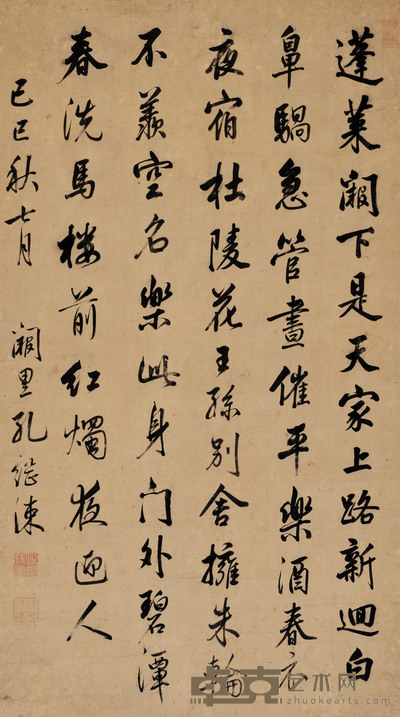 蓬萊闕下是天家上路新迴白
鼻騧急管晝催平樂酒春衣
夜宿杜陵花王孫別舍擁朱輪
不羨空名樂此身門外碧潭
春洗馬樓前紅燭夜迎人
己巳秋七月 闕里孔繼涑
卓克艺术网
zhuokearts.com